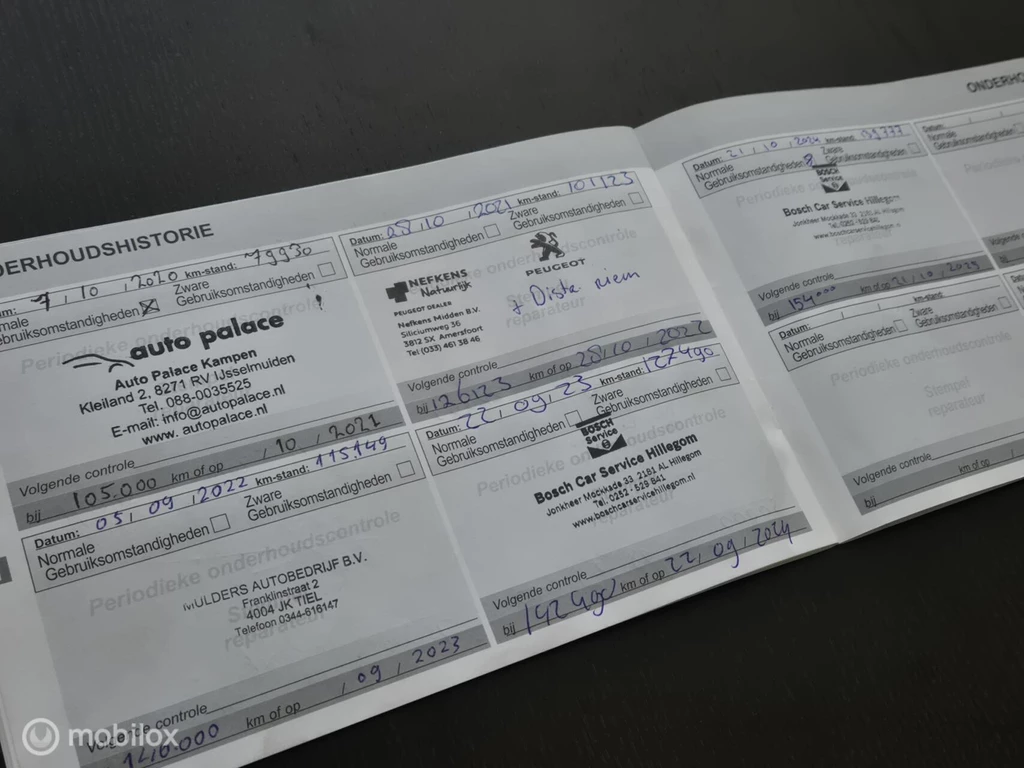 DERHOUDSHISTORIE
um: 7, 10, 2020 km-stand: 79930
male Zware
ebruiksomstandigheden Gebruiksomstandigheden
Periodieke onderhoudscontrole
auto palace
Auto Palace Kampen
Kleiland 2, 8271 RV IJsselmuiden
Tel. 088-0035525
E-mail: info@autopalace.nl
www. autopalace.nl
Volgende controle
bij 105.000 km of op , 10 , 2021
Datum: 05, 09, 2022 km-stand: 115149
Normale Zware
Gebruiksomstandigheden Gebruiksomstandigheden
Periodieke onderhoudscontrole
MULDERS AUTOBEDRIJF B.V.
Franklinstraat 2
4004 JK TIEL
Telefoon 0344-616147
reparateur
Volgende controle
140.000 km of op , 09, 2023
Datum: 28, 10, 2021 km-stand: 101123
Normale Zware
Gebruiksomstandigheden Gebruiksomstandigheden
Periodieke onderhoudscontrole
NEFKENS
Natuurlijk
PEUGEOT
PEUGEOT DEALER
Nefkens Midden B.V.
Siliciumweg 36
3812 SX Amersfoort
Tel (033) 461 38 46
Dista riem
reparateur
Volgende controle
bij 126123 km of op 28, 10, 2022
Datum: 22, 09, 23 km-stand: 127490
Normale Zware
Gebruiksomstandigheden Gebruiksomstandigheden
Periodieke onderhoudscontrole
BOSCH
Service
Bosch Car Service Hillegom
Jonkheer Mockkade 33, 2181 AL Hillegom
Tel. 0252 - 529 841
www.boschcarservicehillegom.nl
reparateur
Volgende controle
bij 142490 km of op 22, 09, 2024
ONDERHO
Datum: 21, 10, 2024 km-stand:
Normale Zware
Gebruiksomstandigheden Gebruiksomstandigheden
Periodieke onderhoudscontrole
BOSCH
Service
Bosch Car Service Hillegom
Jonkheer Mockkade 33, 2181 AL Hillegom
Tel. 0252 - 529 841
www.boschcarservicehillegom.nl
reparateur
Volgende controle
bij 154000 km of op 21, 10, 2025
Datum: / / km-stand
Normale Zware
Gebruiksomstandigheden Gebruiksomstandigheden
Periodieke onderhoudscontrole
Stempel
reparateur
Volgende controle
bij km of op
Datum:
Normale
Gebruiksomstandigheden
Periodieke
Volgende controle
bij
Datum:
Normale
Gebruiksom
mobilox